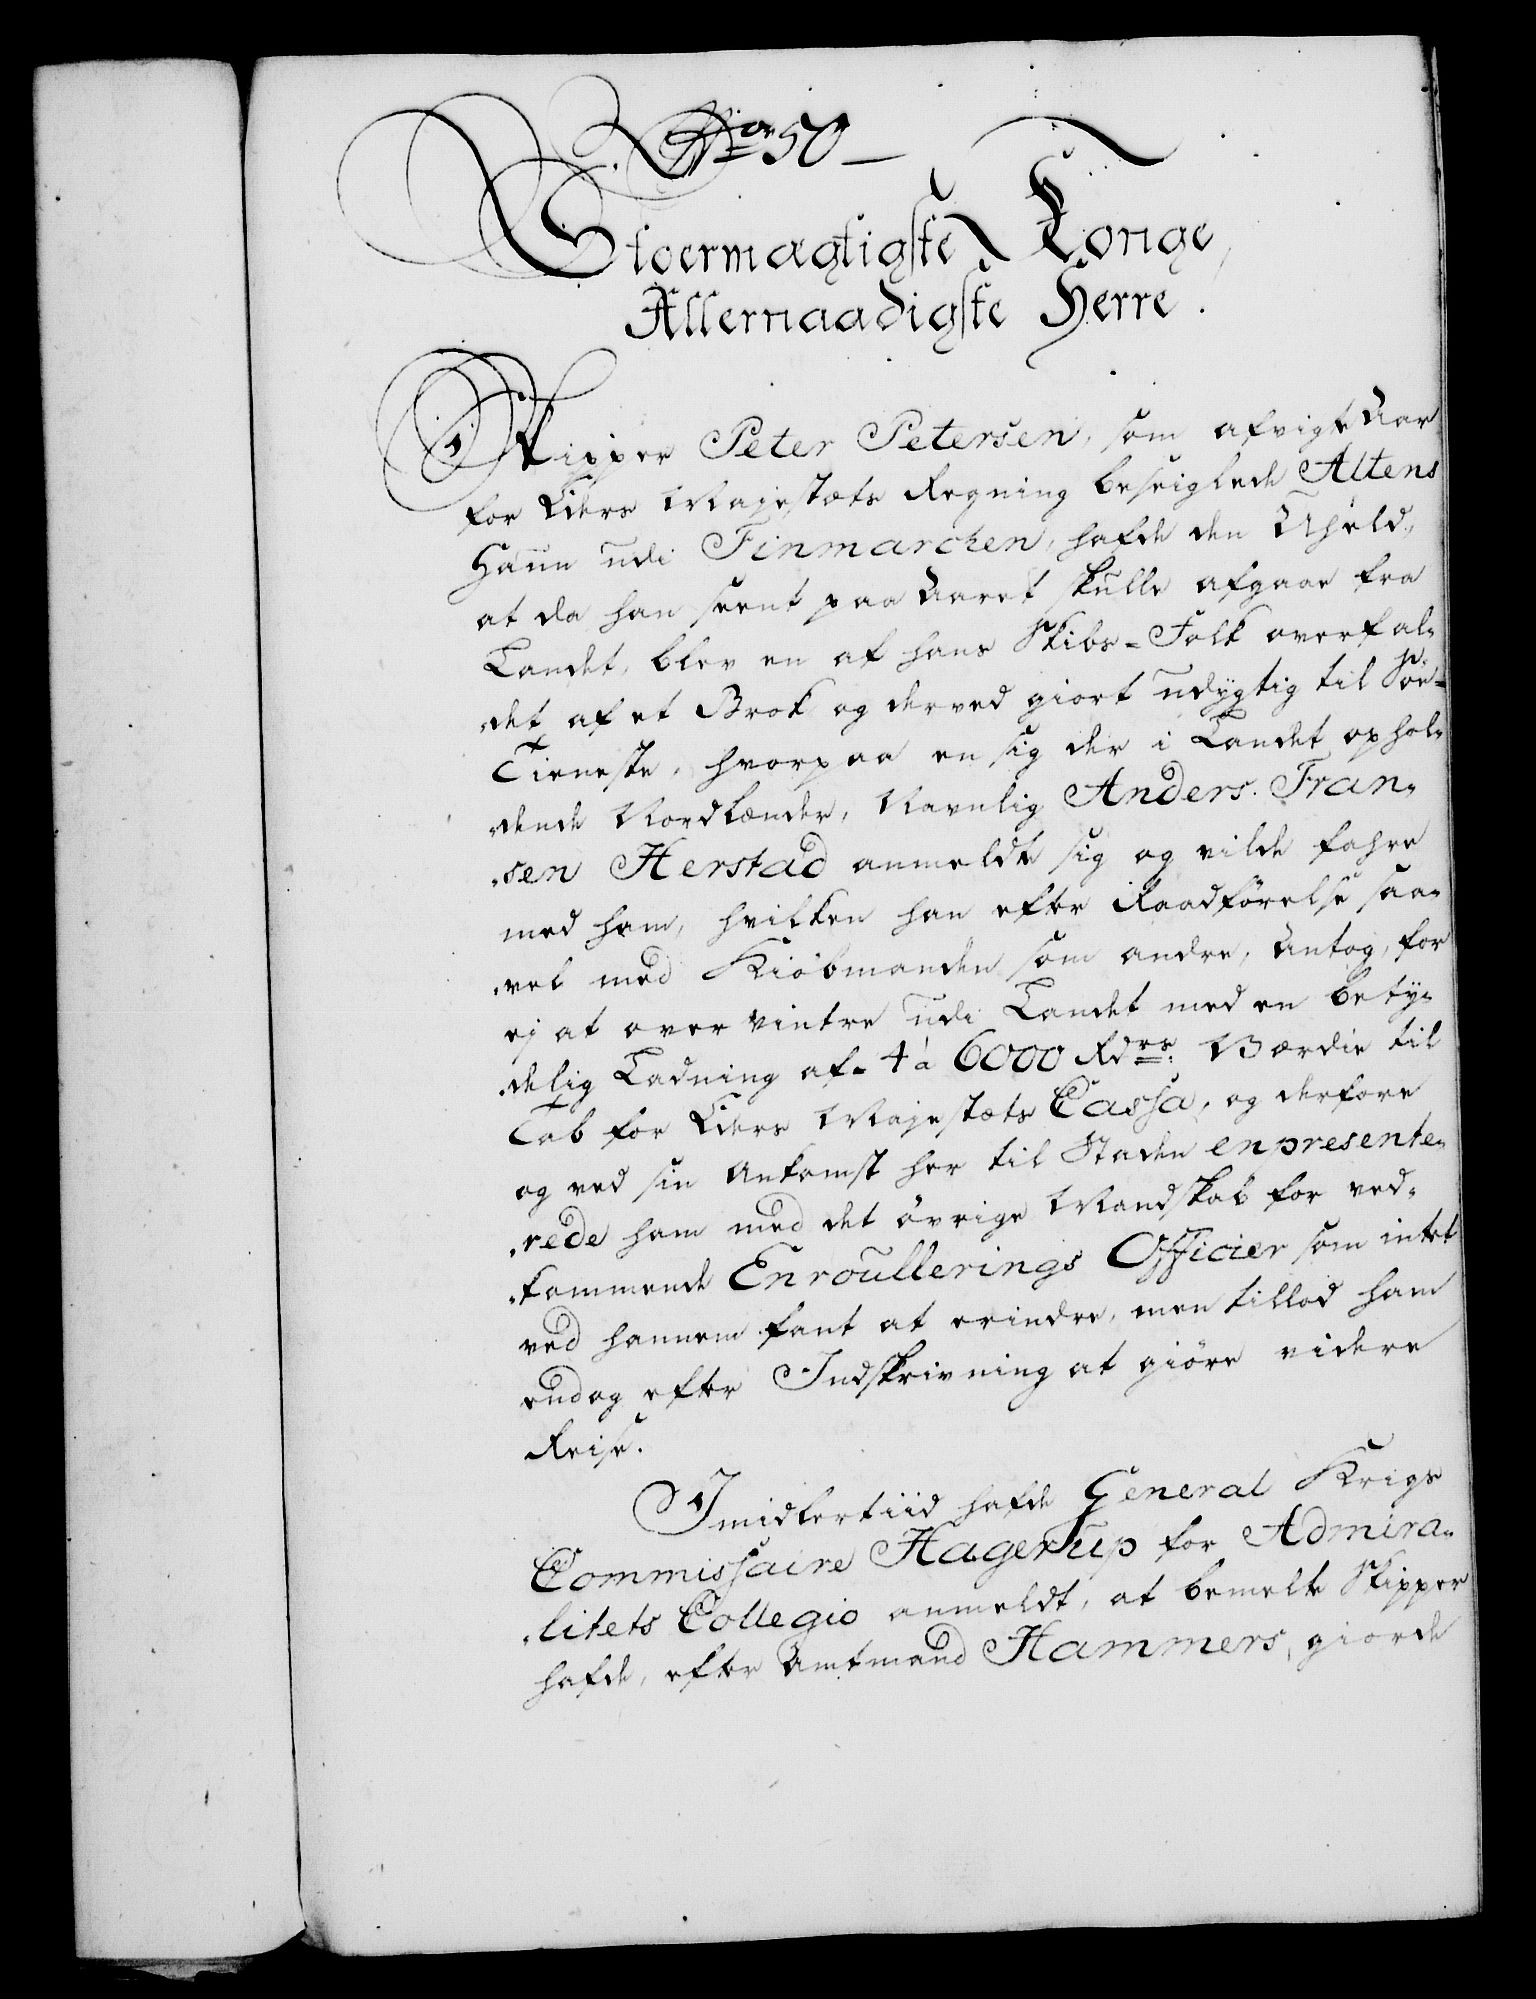 No. 50
Stoermægtigste Konge,
Allernaadigste Herre.
Skipper Peter Petersen, som afvigte Aar
for Eders Majestæts Regning beseiglede Altens
Haun udi Finmarchen, hafde den Uheld,
at da han seent paa Aaret skulle afgaae fra
Landet, blev en af hans Skibs-Folk overfal-
det af et Brok og derved giort udygtig til Söe-
Tieneste, hvorpaa en sig der i Landet ophol-
dende Nordlænder, Navnlig Anders Fran-
sen Herstad anmeldte sig og vilde fahre
med ham, hvilken han efter Raadförelse saa-
vel med Kiöbmanden som andre, Antog, for
ej at over vintre udi Landet med en bety-
delig Ladning af 4 à 6000 Rdrs. Værdie til
Tab for Eders Majestæts Cassa, og derfore
og ved sin Ankomst her til Staden enpresente-
rede ham med det övrige Mandskab for ved-
kommende Enroullerings Officier som intet
ved hannem fant at erindre, men tillod ham
endog efter Indskrivning at giöre videre
Reise.
Imidlertiid hafde General Krigs
Commissaire Hagerup for Admira-
litets Collegio anmeldt, at bemelte Skipper
hafde, efter Amtmand Hammers, giorde